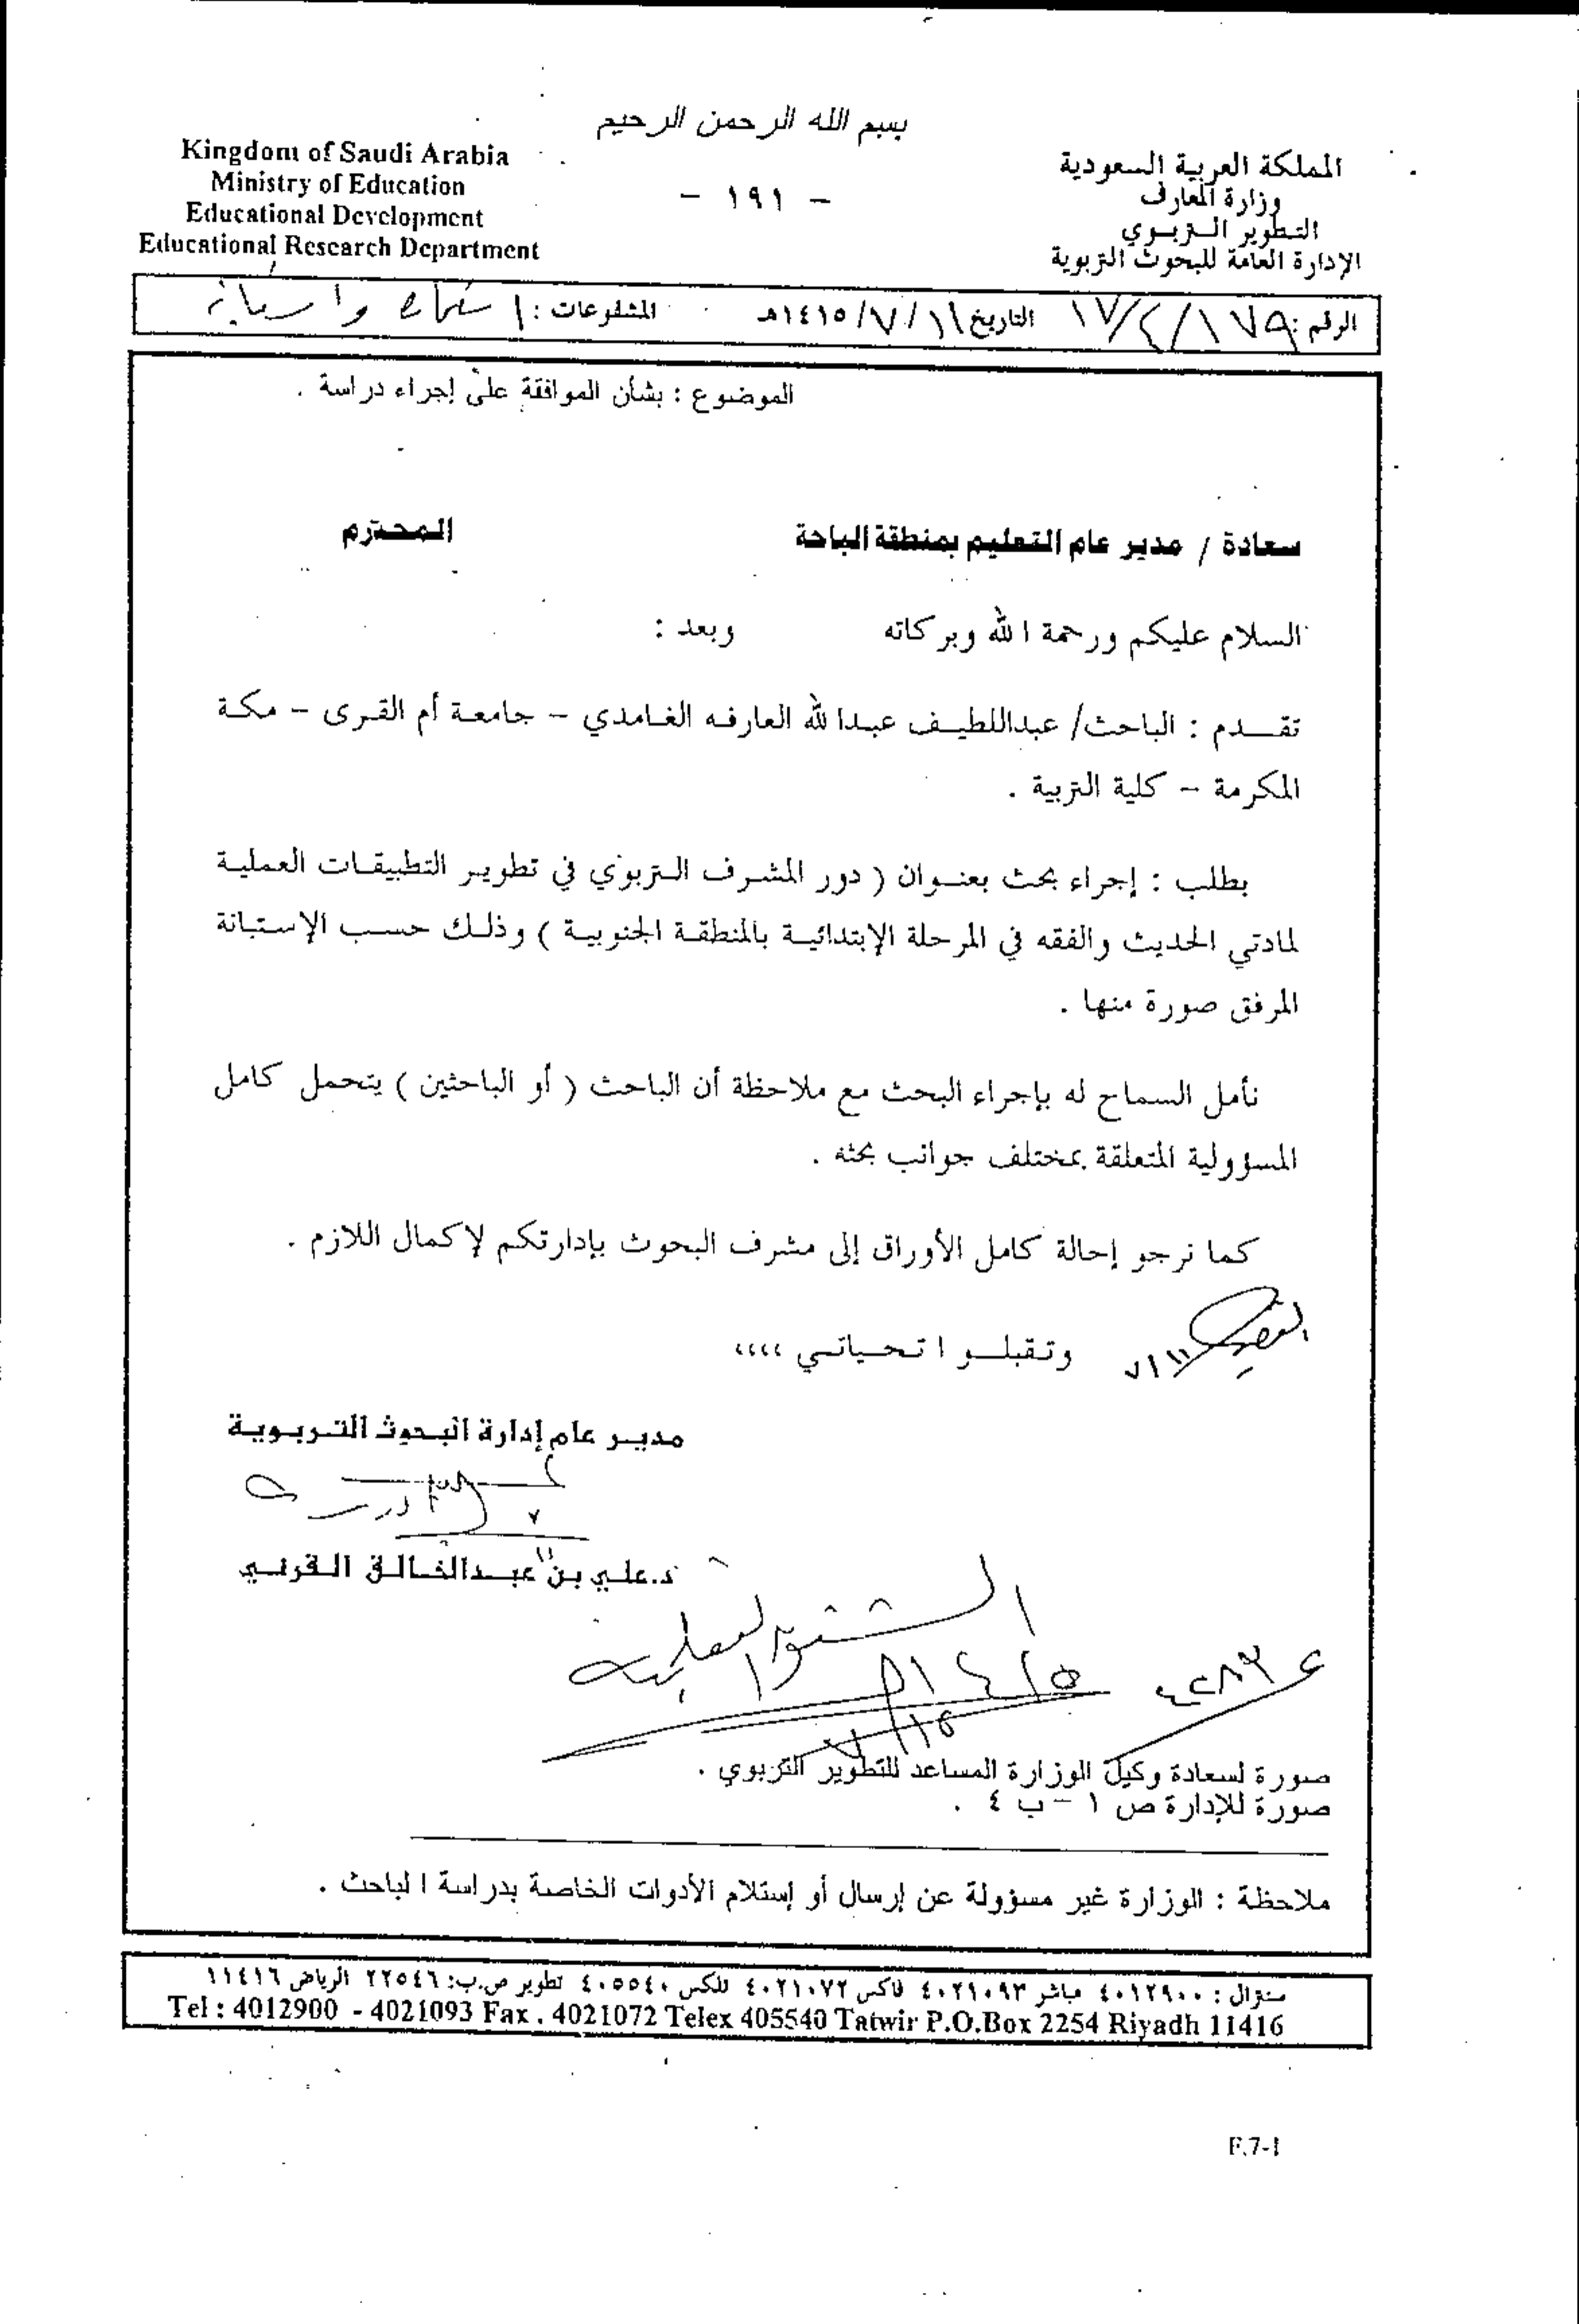 بسم الله الرحمن الرحيم
Kingdom of Saudi Arabia
Ministry of Education
Educational Development
Educational Research Department
- ١٩١ -
المملكة العربية السعودية
وزارة المعارف
التطوير التربوي
الإدارة العامة للبحوث التربوية
الرقم : ١٧/٤/١٧٩ التاريخ ١١/٧/١٤١٥هـ المشفوعات :
الموضوع : بشأن الموافقة على إجراء دراسة .
سعادة / مدير عام التعليم بمنطقة الباحة المحترم
السلام عليكم ورحمة الله وبركاته وبعد :
تقدم : الباحث/ عبداللطيف عبدالله العارفه الغامدي - جامعة أم القرى - مكة
المكرمة - كلية التربية .
بطلب : إجراء بحث بعنوان ( دور المشرف التربوي في تطوير التطبيقات العملية
لمادتي الحديث والفقه في المرحلة الإبتدائية بالمنطقة الجنوبية ) وذلك حسب الإستبانة
المرفق صورة منها .
نأمل السماح له بإجراء البحث مع ملاحظة أن الباحث ( أو الباحثين ) يتحمل كامل
المسؤولية المتعلقة بمختلف جوانب بحثه .
كما نرجو إحالة كامل الأوراق إلى مشرف البحوث بإدارتكم لإكمال اللازم .
وتقبلوا تحياتي ،،،،
مدير عام إدارة البحوث التربوية
د.علي بن عبدالخالق القرني
صورة لسعادة وكيل الوزارة المساعد للتطوير التربوي .
صورة للإدارة ص ١ - ب ٤ .
ملاحظة : الوزارة غير مسؤولة عن إرسال أو إستلام الأدوات الخاصة بدراسة الباحث .
سنترال : ٤٠١٢٩٠٠ مباشر ٤٠٢١٠٩٣ فاكس ٤٠٢١٠٧٢ تلكس ٤٠٥٥٤٠ تطوير ص.ب: ٢٢٥٤٦ الرياض ١١٤١٦
Tel : 4012900 - 4021093 Fax . 4021072 Telex 405540 Tatwir P.O.Box 2254 Riyadh 11416
F.7-1